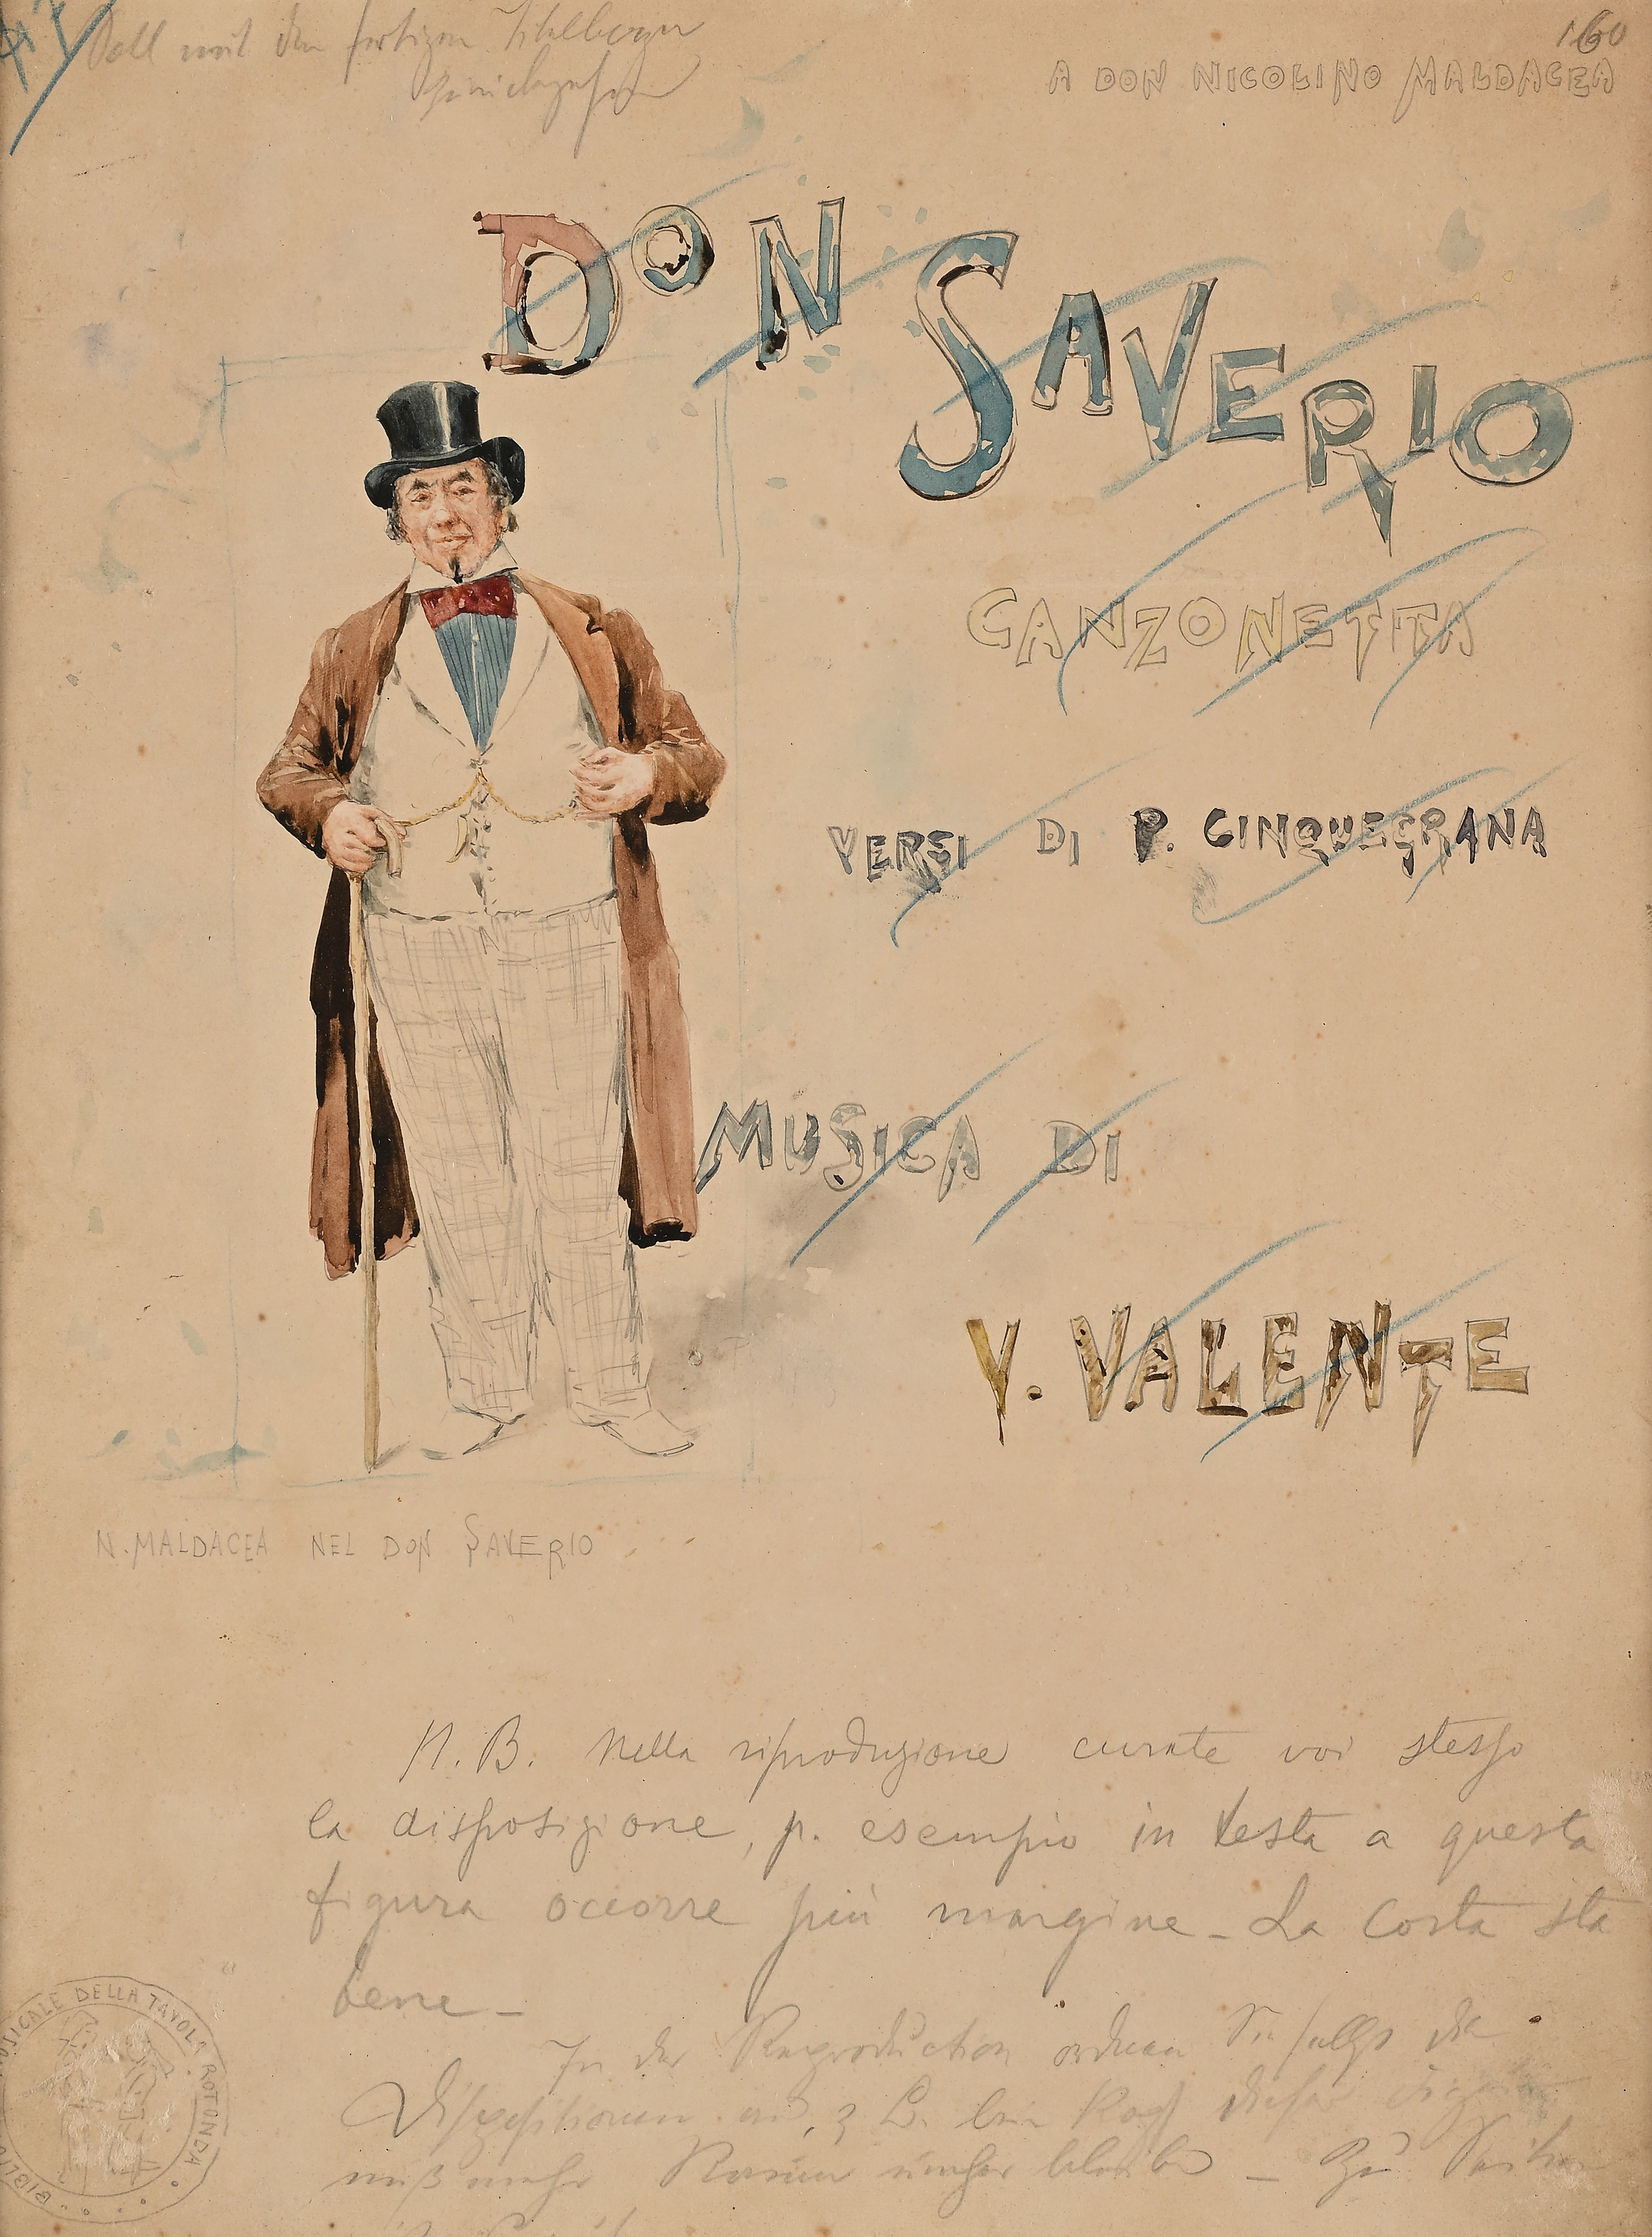 160
A DON NICOLINO MALDACEA
mit den fertigen
DON SAVERIO
CANZONETTA
VERSI DI P. CINQUEGRANA
MUSICA DI
V. VALENTE
N. MALDACEA NEL DON SAVERIO
N. B. Nella riproduzione curate voi stesso
la disposizione, p. esempio in testa a questa
figura occorre più margine - La costa sta
bene -
In der Reproduction ordnen Sie selbst die
Dispositionen z. B. beim Kopf dieser
muß mehr Raum bleiben -
MUSICALE DELLA TAVOLA ROTONDA